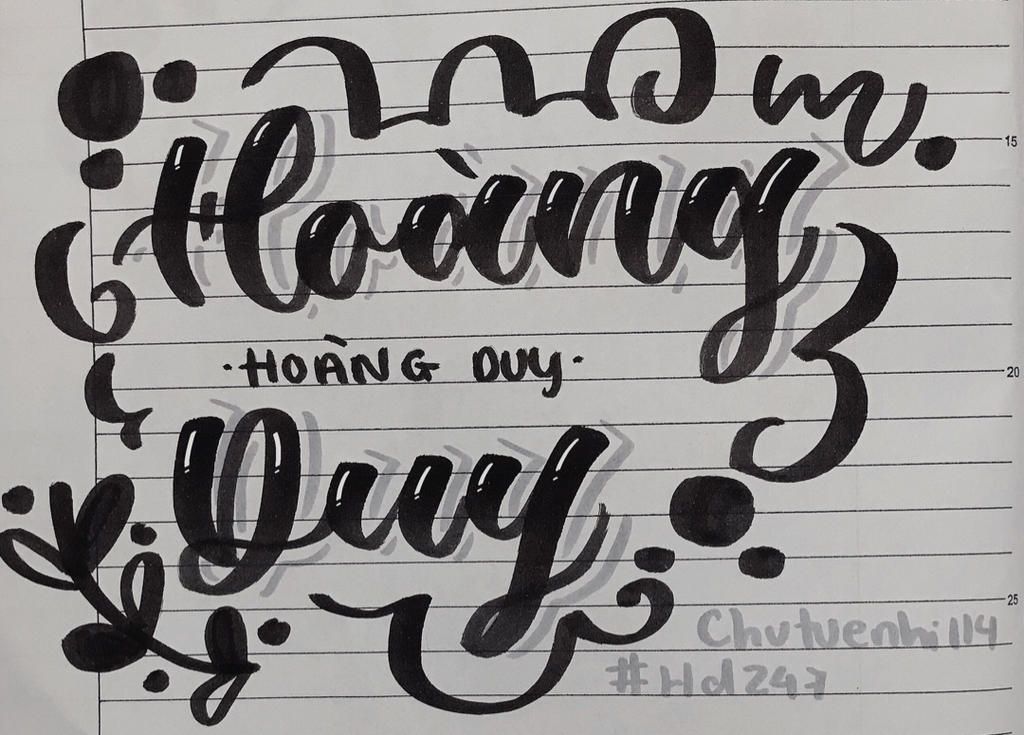 Hoàng
·HOÀNG DUY·
Duy
Chutuenhi114
#Hd247
15
20
25